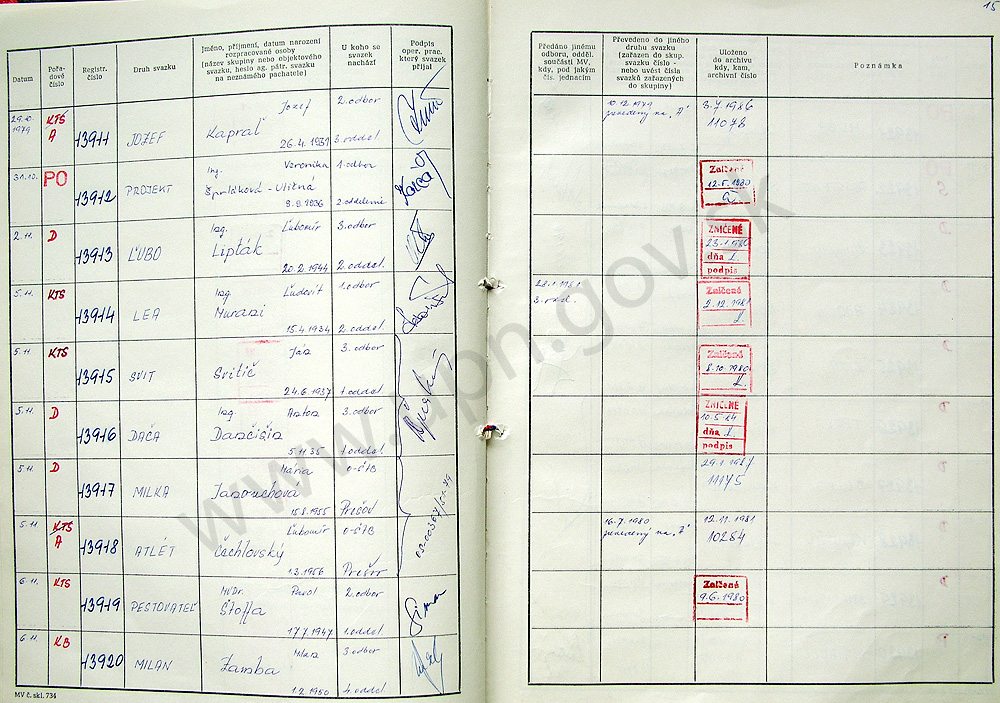 15
Datum
Pořa-
dové
číslo
Registr.
číslo
Druh svazku
Jméno, příjmení, datum narození
rozpracované osoby
(název skupiny nebo objektového
svazku, heslo ag. pátr. svazku
na neznámého pachatele)
U koho se
svazek
nachází
Podpis
oper. prac.
který svazek
přijal
Předáno jinému
odboru, odděl.
součásti MV,
kdy, pod jakým
čís. jednacím
Převedeno do jiného
druhu svazku
(zařazen do skup.
svazku číslo -
nebo uvést čísla
svazků zařazených
do skupiny)
Uloženo
do archivu
kdy, kam,
archivní číslo
Poznámka
29.10.
1979
KTS
A
13911
JOZEF
Jozef
Kapraľ
26.4.1931
2. odbor
3. oddel.
10.12.1979
prevedený na "A"
3.7.1986
11078
31.10.
PO
13912
PROJEKT
Ing. Veronika
Uličná
9.9.1936
1. odbor
2. oddelenie
Zničené
12.5.1980
2.11.
D
13913
ĽUBO
Ing. Ľubomír
Lipták
20.2.1944
3. odbor
2. oddel.
ZNIČENÉ
23.1.1980
dňa
podpis
5.11.
KTS
13914
LEA
Ing. Ľudovít
15.4.1934
1. odbor
2. oddel.
3. odd.
Zničené
2.12.1981
5.11.
KTS
13915
SVIT
Ján
Svitič
24.6.1937
3. odbor
1. oddel.
Zničené
8.10.1980
5.11.
D
13916
DAČA
Ing. Anton
5.11.35
3. odbor
1. oddel.
ZNIČENÉ
dňa
podpis
5.11.
D
13917
MILKA
Mária
Janouchová
15.8.1955
O-ŠTB
Prešov
11115
5.11.
KTS
A
13918
ATLÉT
Ľubomír
Čechlovský
1.3.1956
O-ŠTB
Prešov
16.7.1980
prevedený na "A"
12.11.1981
10284
6.11.
KTS
13919
PESTOVATEĽ
MVDr. Pavol
Štoffa
17.7.1947
2. odbor
1. oddel.
Zničené
9.6.1980
6.11.
KB
13920
MILAN
Milan
Zamba
1.2.1950
3. odbor
4. oddel.
MV č. skl. 734
www.upn.gov.sk